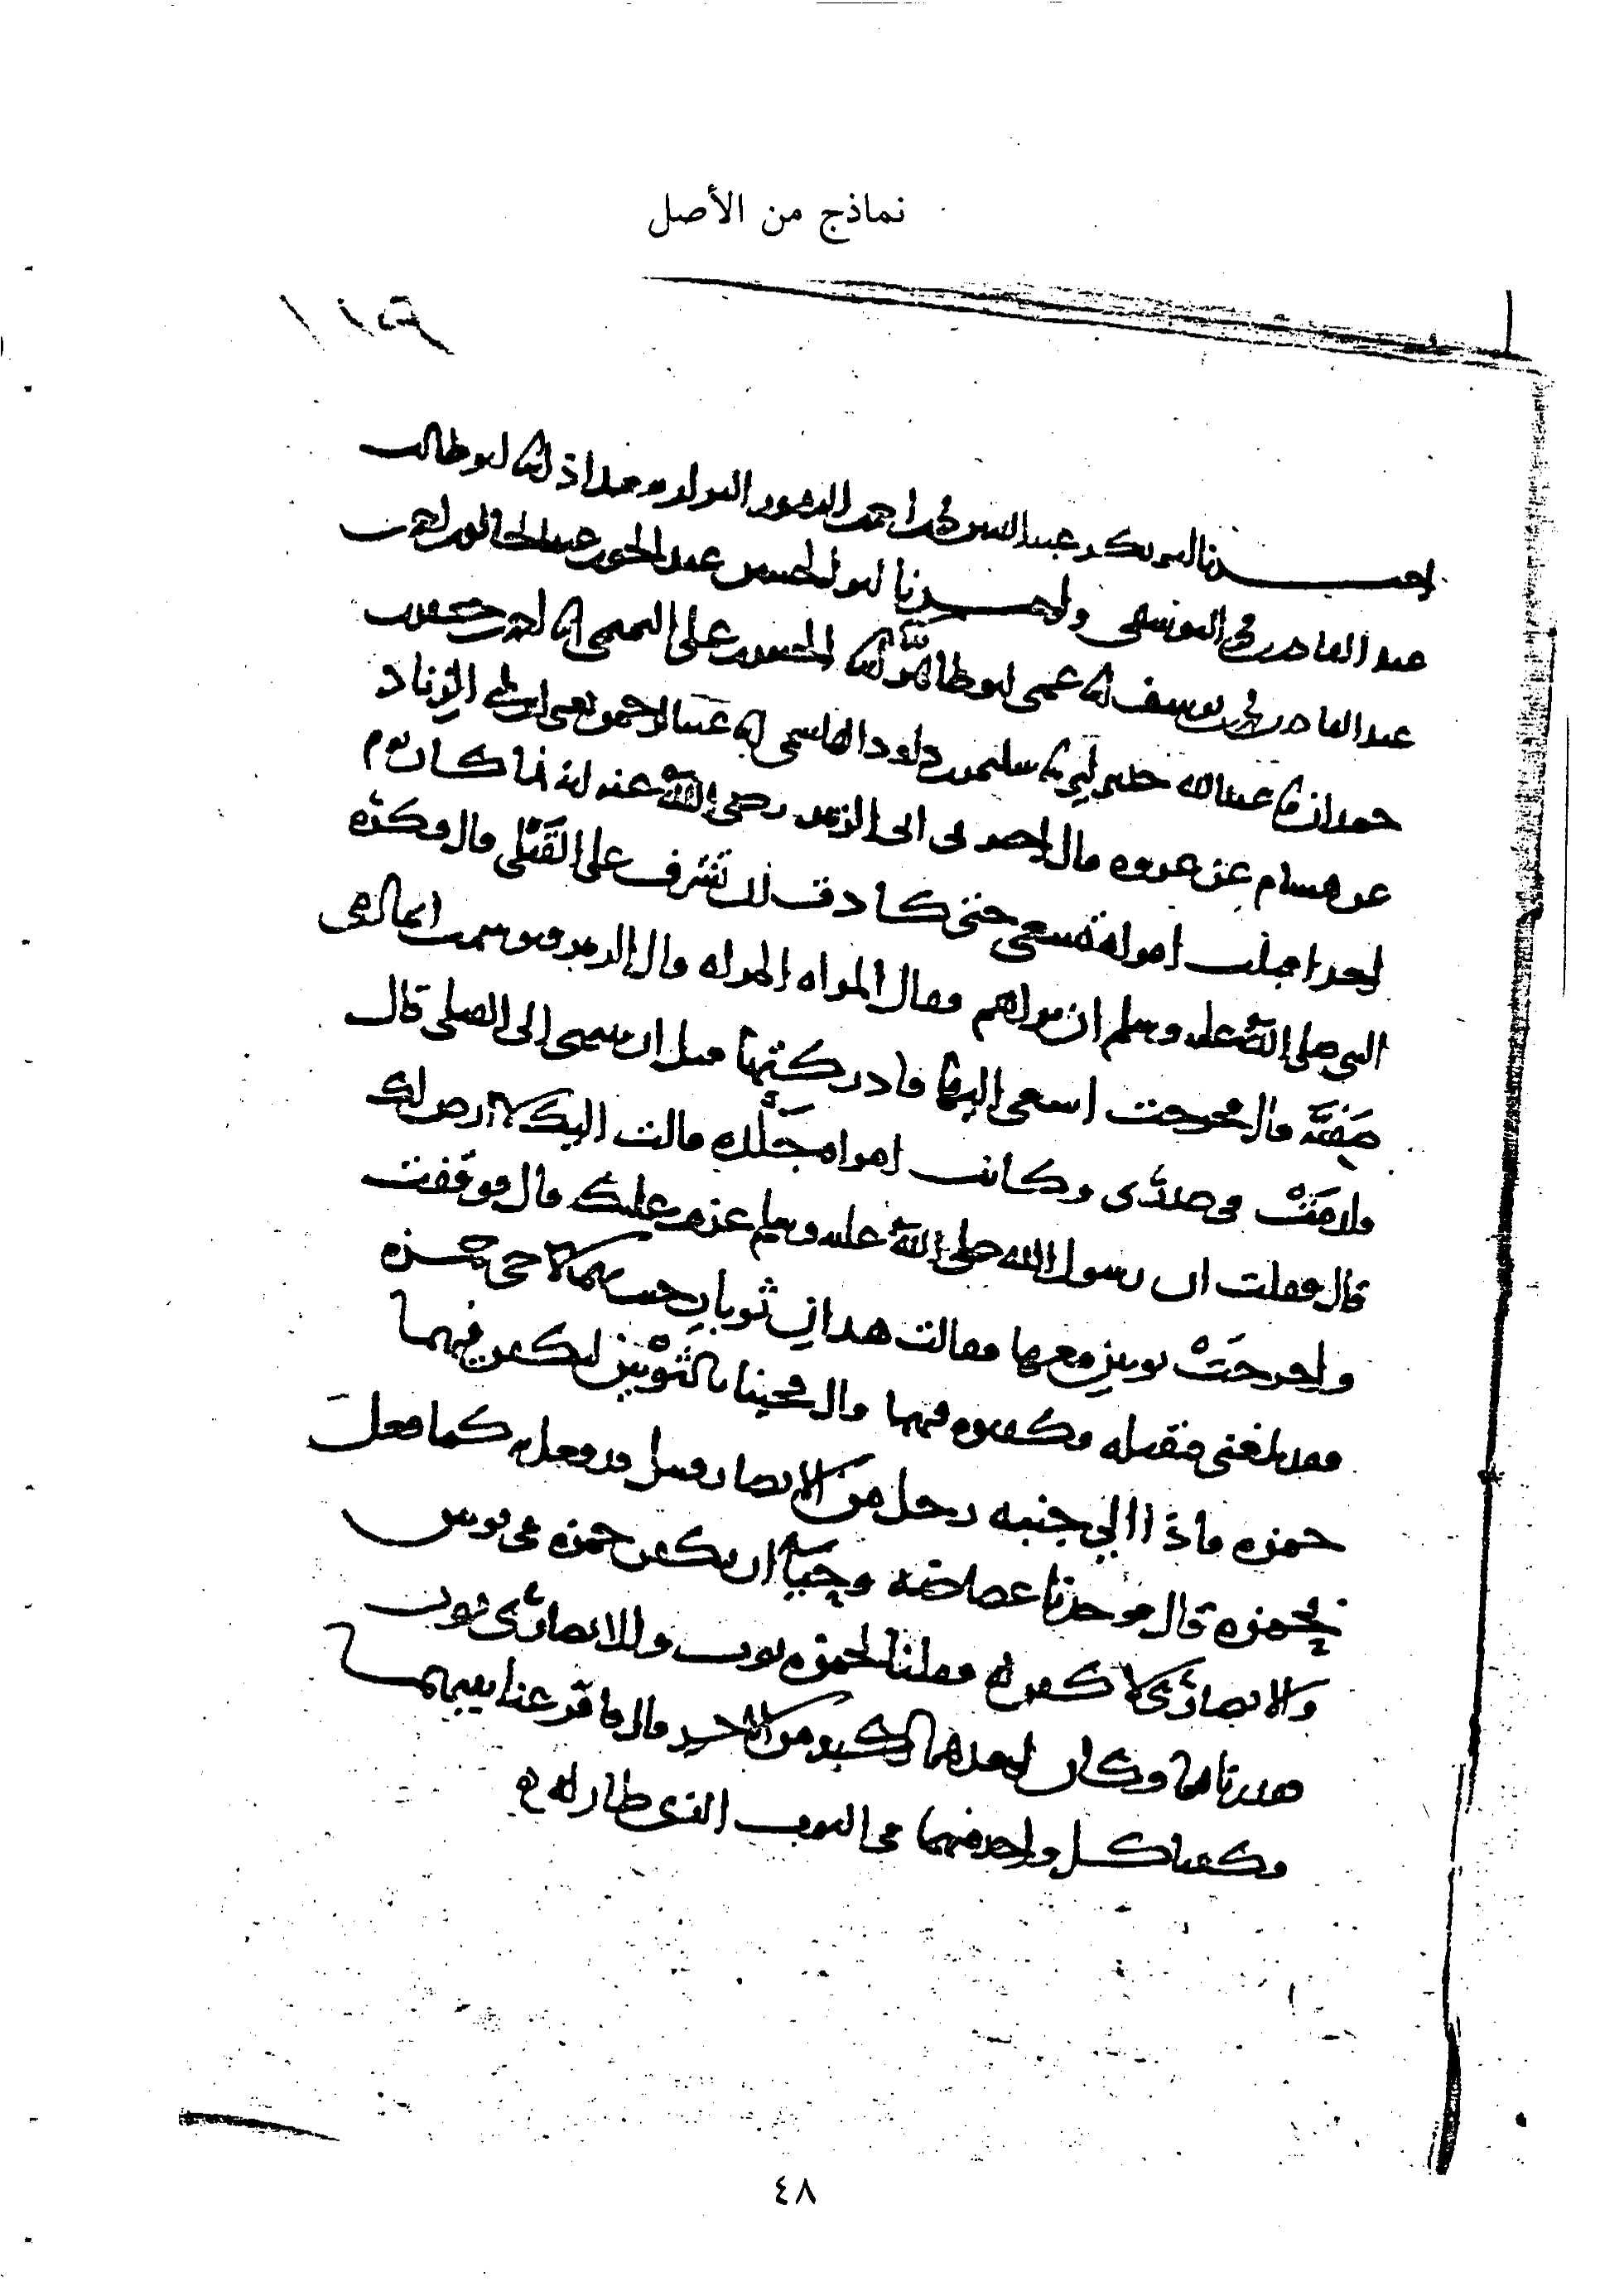 نماذج من الأصل
اخبرنا ابو بكر عبد الله بن محمد بن احمد بن النقور البزاز ببغداذ انا ابو طالب
عبد القادر بن محمد اليوسفي واخبرنا ابو الحسين عبد الحق بن عبد الخالق بن احمد بن
عبد القادر بن محمد بن يوسف انا عمي ابو طاهر انا الحسن بن علي التميمي انا احمد بن جعفر بن
حمدان نا عبد الله حدثني ابي نا سليمن بن داود الهاشمي انا عبد الرحمن يعني ابن ابي الزناد
عن هشام عن عروه قال اخبرني ابي الزبير رضي الله عنه انه لما كان يوم
احد اقبلت امراة تسعى حتى كادت ان تشرف على القتلى قال فكره
النبي صلى الله عليه وسلم ان تراهم فقال المراه المراه قال الزبير فتوسمت انها امي
صفية قال فخرجت اسعى اليها فادركتها قبل ان تنتهي إلى القتلى قال
فلدمت في صدري وكانت امراه جلده قالت اليك لا ارض لك
قال فقلت ان رسول الله صلى الله عليه وسلم عزم عليك قال فوقفت
واخرجت ثوبين معها فقالت هذان ثوبان جئت بهما لاخي حمزه
فقد بلغني مقتله فكفنوه فيهما قال فجئنا بالثوبين لنكفن فيهما
حمزه فاذا الي جنبه رجل من الانصار قتيل قد فعل به كما فعل
بحمزه قال فوجدنا غضاضه وحياء ان نكفن حمزه في ثوبين
والانصاري لا كفن له فقلنا لحمزه ثوب وللانصاري ثوب
فقدرناهما وكان احدهما اكبر من الاخر قال فاقرعنا بينهما
وكفنا كل واحد منهما في الثوب الذي طار له
٤٨